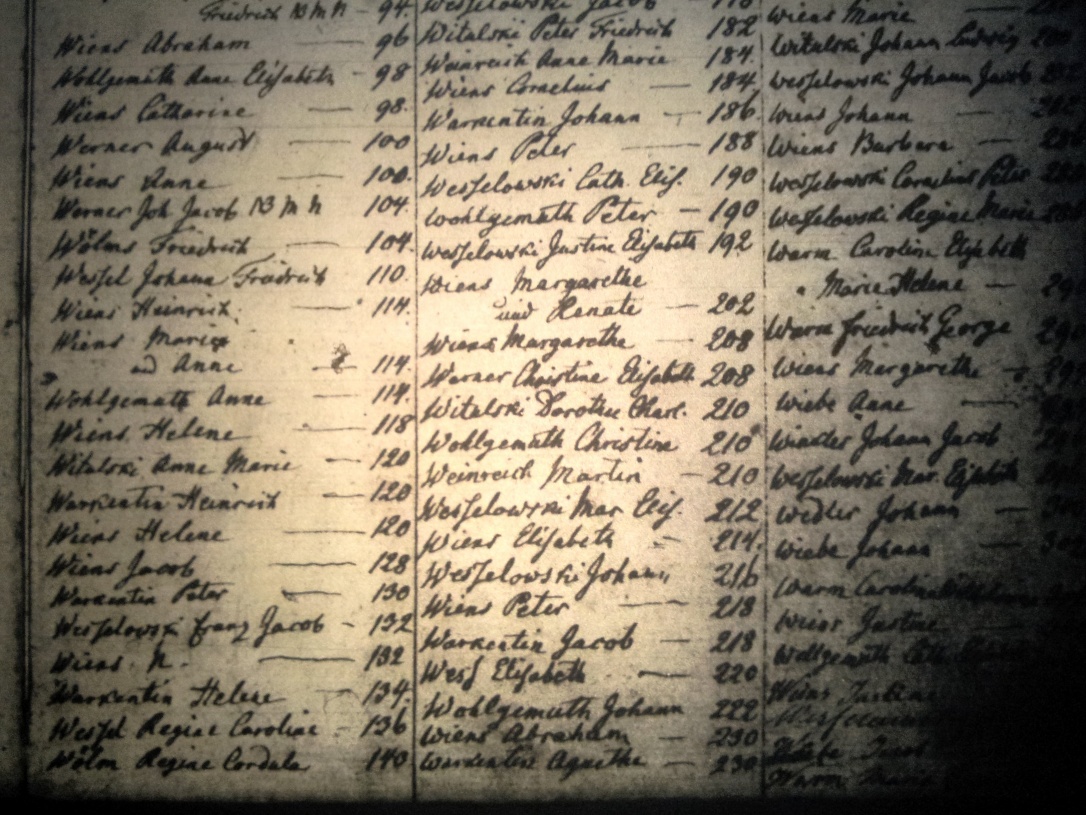 Friedrich N M N - 94.
Wiens Abraham — 96
Wohlgemuth Anne Elisabeth - 98
Wiens Catharine — 98.
Werner August — 100
Wiens Anne — 100.
Werner Joh Jacob N M N 104.
Wölms Friedrich — 104.
Wessel Johann Friedrich 110.
Wiens Heinrich — 114.
Wiens Marie
und Anne — 114.
Wohlgemuth Anne — 114.
Wiens Helene — 118
Witulski Anne Marie — 120
Warkentin Heinrich — 120
Wiens Helene — 120
Wiens Jacob — 128
Warkentin Peter — 130
Wesselowski Franz Jacob - 132
Wiens N. — 132
Warkentin Helene — 134.
Wessel Regine Caroline - 136
Wölm Regine Cordula 140
Wesselowski Jacob
Witulski Peter Friedrich 182
Weinreich Anne Marie 184.
Wiens Cornelius — 184
Warkentin Johann — 186.
Wiens Peter — 188
Wesselowski Cath. Elis. 190
Wohlgemuth Peter — 190
Wesselowski Justine Elisabeth 192
Wiens Margarethe
und Renate — 202
Wiens Margarethe — 208
Werner Christine Elisabeth 208
Witulski Dorothe Charl. 210
Wohlgemuth Christine 210
Weinreich Martin - 210
Wesselowski Mar Elis. 212
Wiens Elisabeth - 214.
Wesselowski Johann 216
Wiens Peter — 218
Warkentin Jacob — 218
Wess Elisabeth — 220
Wohlgemuth Johann 222
Wiens Abraham — 230
Warkentin Agnethe — 230
Wiens Marie —
Witulski Johann Ludwig
Wesselowski Johann Jacob
Wiens Johann —
Wiens Barbara —
Wesselowski Cornelius Peter
Wesselowski Regine Marie
Warm Caroline Elisabeth
Marie Helene —
Warm Friedrich George
Wiens Margarethe -
Wiebe Anne —
Johann Jacob
Wesselowski Mar. Elisabeth
Wedler Johann —
Wiebe Johann
Warm Caroline
Wiens Justine
Wohlgemuth Cath
Wiens Justine
Warm